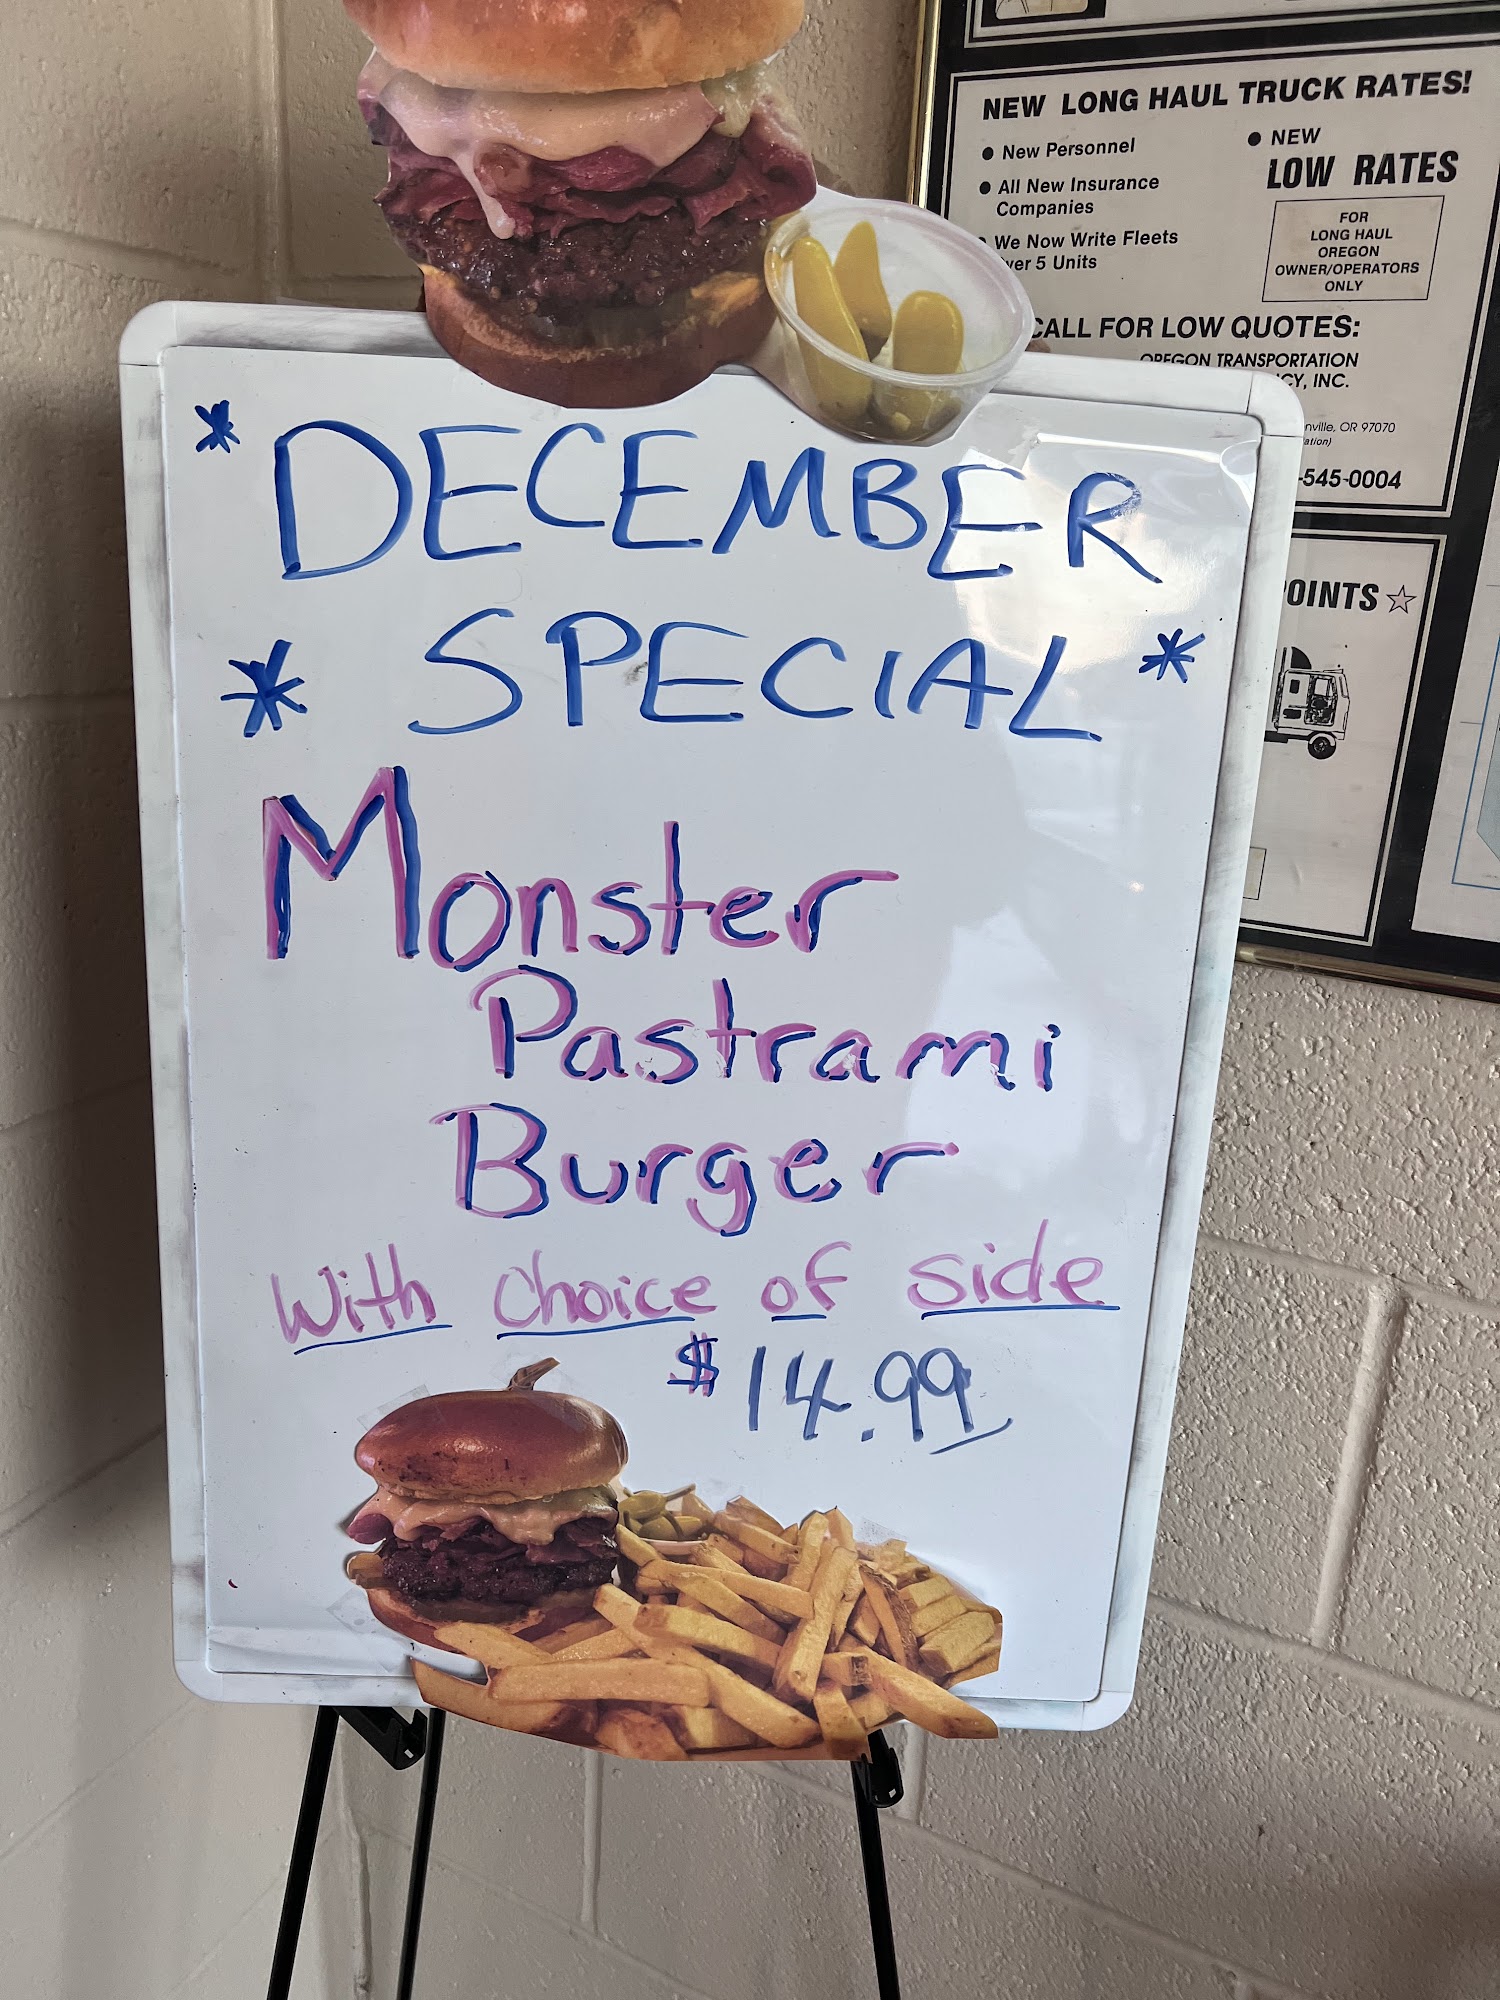 *DECEMBER
* SPECIAL *
Monster
Pastrami
Burger
With choice of side
$14.99
NEW LONG HAUL TRUCK RATES!
● New Personnel
● All New Insurance
Companies
● We Now Write Fleets
5 Units
● NEW
LOW RATES
FOR
LONG HAUL
OREGON
OWNER/OPERATORS
ONLY
CALL FOR LOW QUOTES:
OREGON TRANSPORTATION
INC.
OR 97070
-545-0004
POINTS ☆